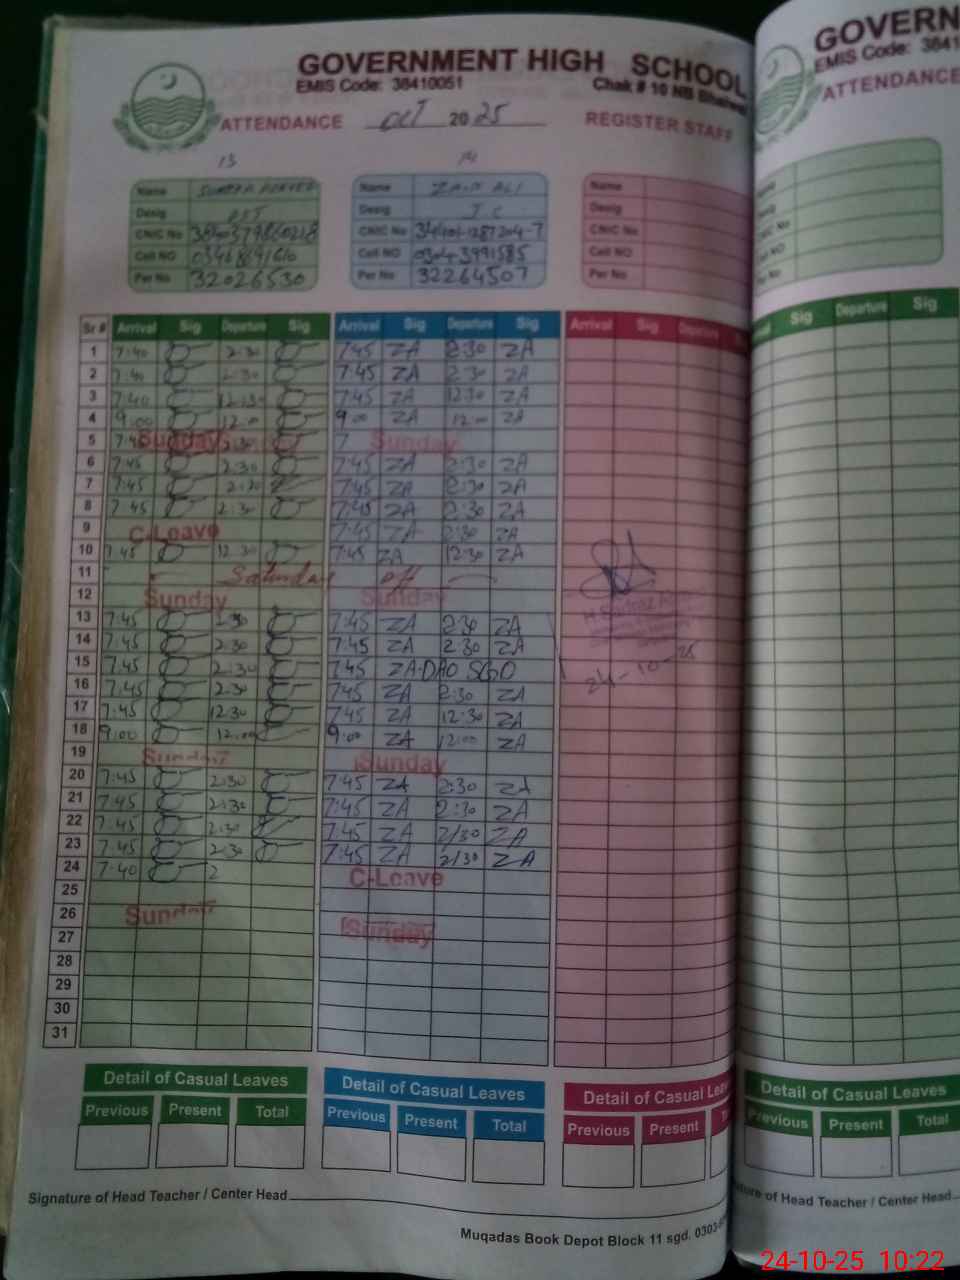 GOVERNMENT HIGH SCHOOL
EMIS Code: 38410051 Chak # 10 NB
ATTENDANCE Oct 2025 REGISTER STAFF
13 14
Name Name ZAID ALI Name
Desig Desig Desig
CNIC No CNIC No CNIC No
Cell NO Cell NO 0304-3991585 Cell NO
Per No 32026530 Per No 32264507 Per No
Sr # Arrival Sig Departure Sig Arrival Sig Departure Sig Arrival Sig Departure
1 7:40 2:30 7:45 ZA 2:30 ZA
2 7:40 2:30 7:45 ZA 2:30 ZA
3 7:40 12:30 7:45 ZA 12:30 ZA
4 9:00 12:00 9:00 ZA 12:00 ZA
5 7:45 Sunday 2:30 7 Sunday
6 7:45 2:30 7:45 ZA 2:30 ZA
7 7:45 2:30 7:45 ZA 2:30 ZA
8 7:45 2:30 7:45 ZA 2:30 ZA
9 C-Leave 7:45 ZA 2:30 ZA
10 7:45 12:30 7:45 ZA 12:30 ZA
11 Saturday off
12 Sunday Sunday
13 7:45 2:30 7:45 ZA 2:30 ZA
14 7:45 2:30 7:45 ZA 2:30 ZA
15 7:45 2:30 7:45 ZA DAO SGD
16 7:45 2:30 7:45 ZA 2:30 ZA
17 7:45 12:30 7:45 ZA 12:30 ZA
18 9:00 12:00 9:00 ZA 12:00 ZA
19 Sunday Sunday
20 7:45 2:30 7:45 ZA 2:30 ZA
21 7:45 2:30 7:45 ZA 2:30 ZA
22 7:45 2:30 7:45 ZA 2/30 ZA
23 7:45 2:30 7:45 ZA 2/30 ZA
24 7:40 2 C-Leave
25
26 Sunday Sunday
27
28
29
30
31
24-10-25
Detail of Casual Leaves Detail of Casual Leaves Detail of Casual
Previous Present Total Previous Present Total Previous Present
Signature of Head Teacher / Center Head
Muqadas Book Depot Block 11 sgd. 0303
GOVERN
EMIS Code: 3841
ATTENDANCE
Sig Departure Sig
Detail of Casual Leaves
Previous Present Total
of Head Teacher / Center Head
24-10-25 10:22